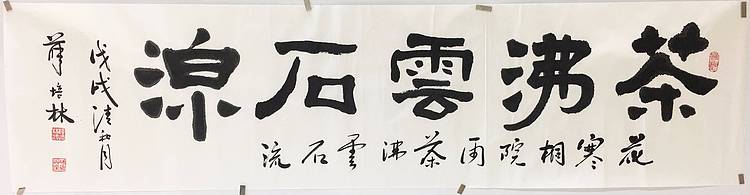 茶沸雲石湶
花寒桐院雨茶沸雲石流
戊戌清和月
薛培林